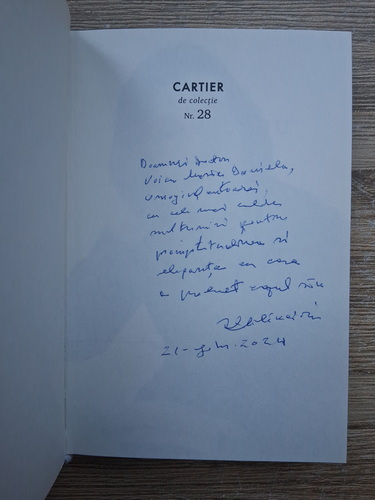 CARTIER
de colecție
Nr. 28
Doamnei doctor
Voicu Maria Daniela,
cu cele mai calde
mulțumiri pentru
promptitudinea și
eleganța cu care
a preluat cazul său
21-
2024